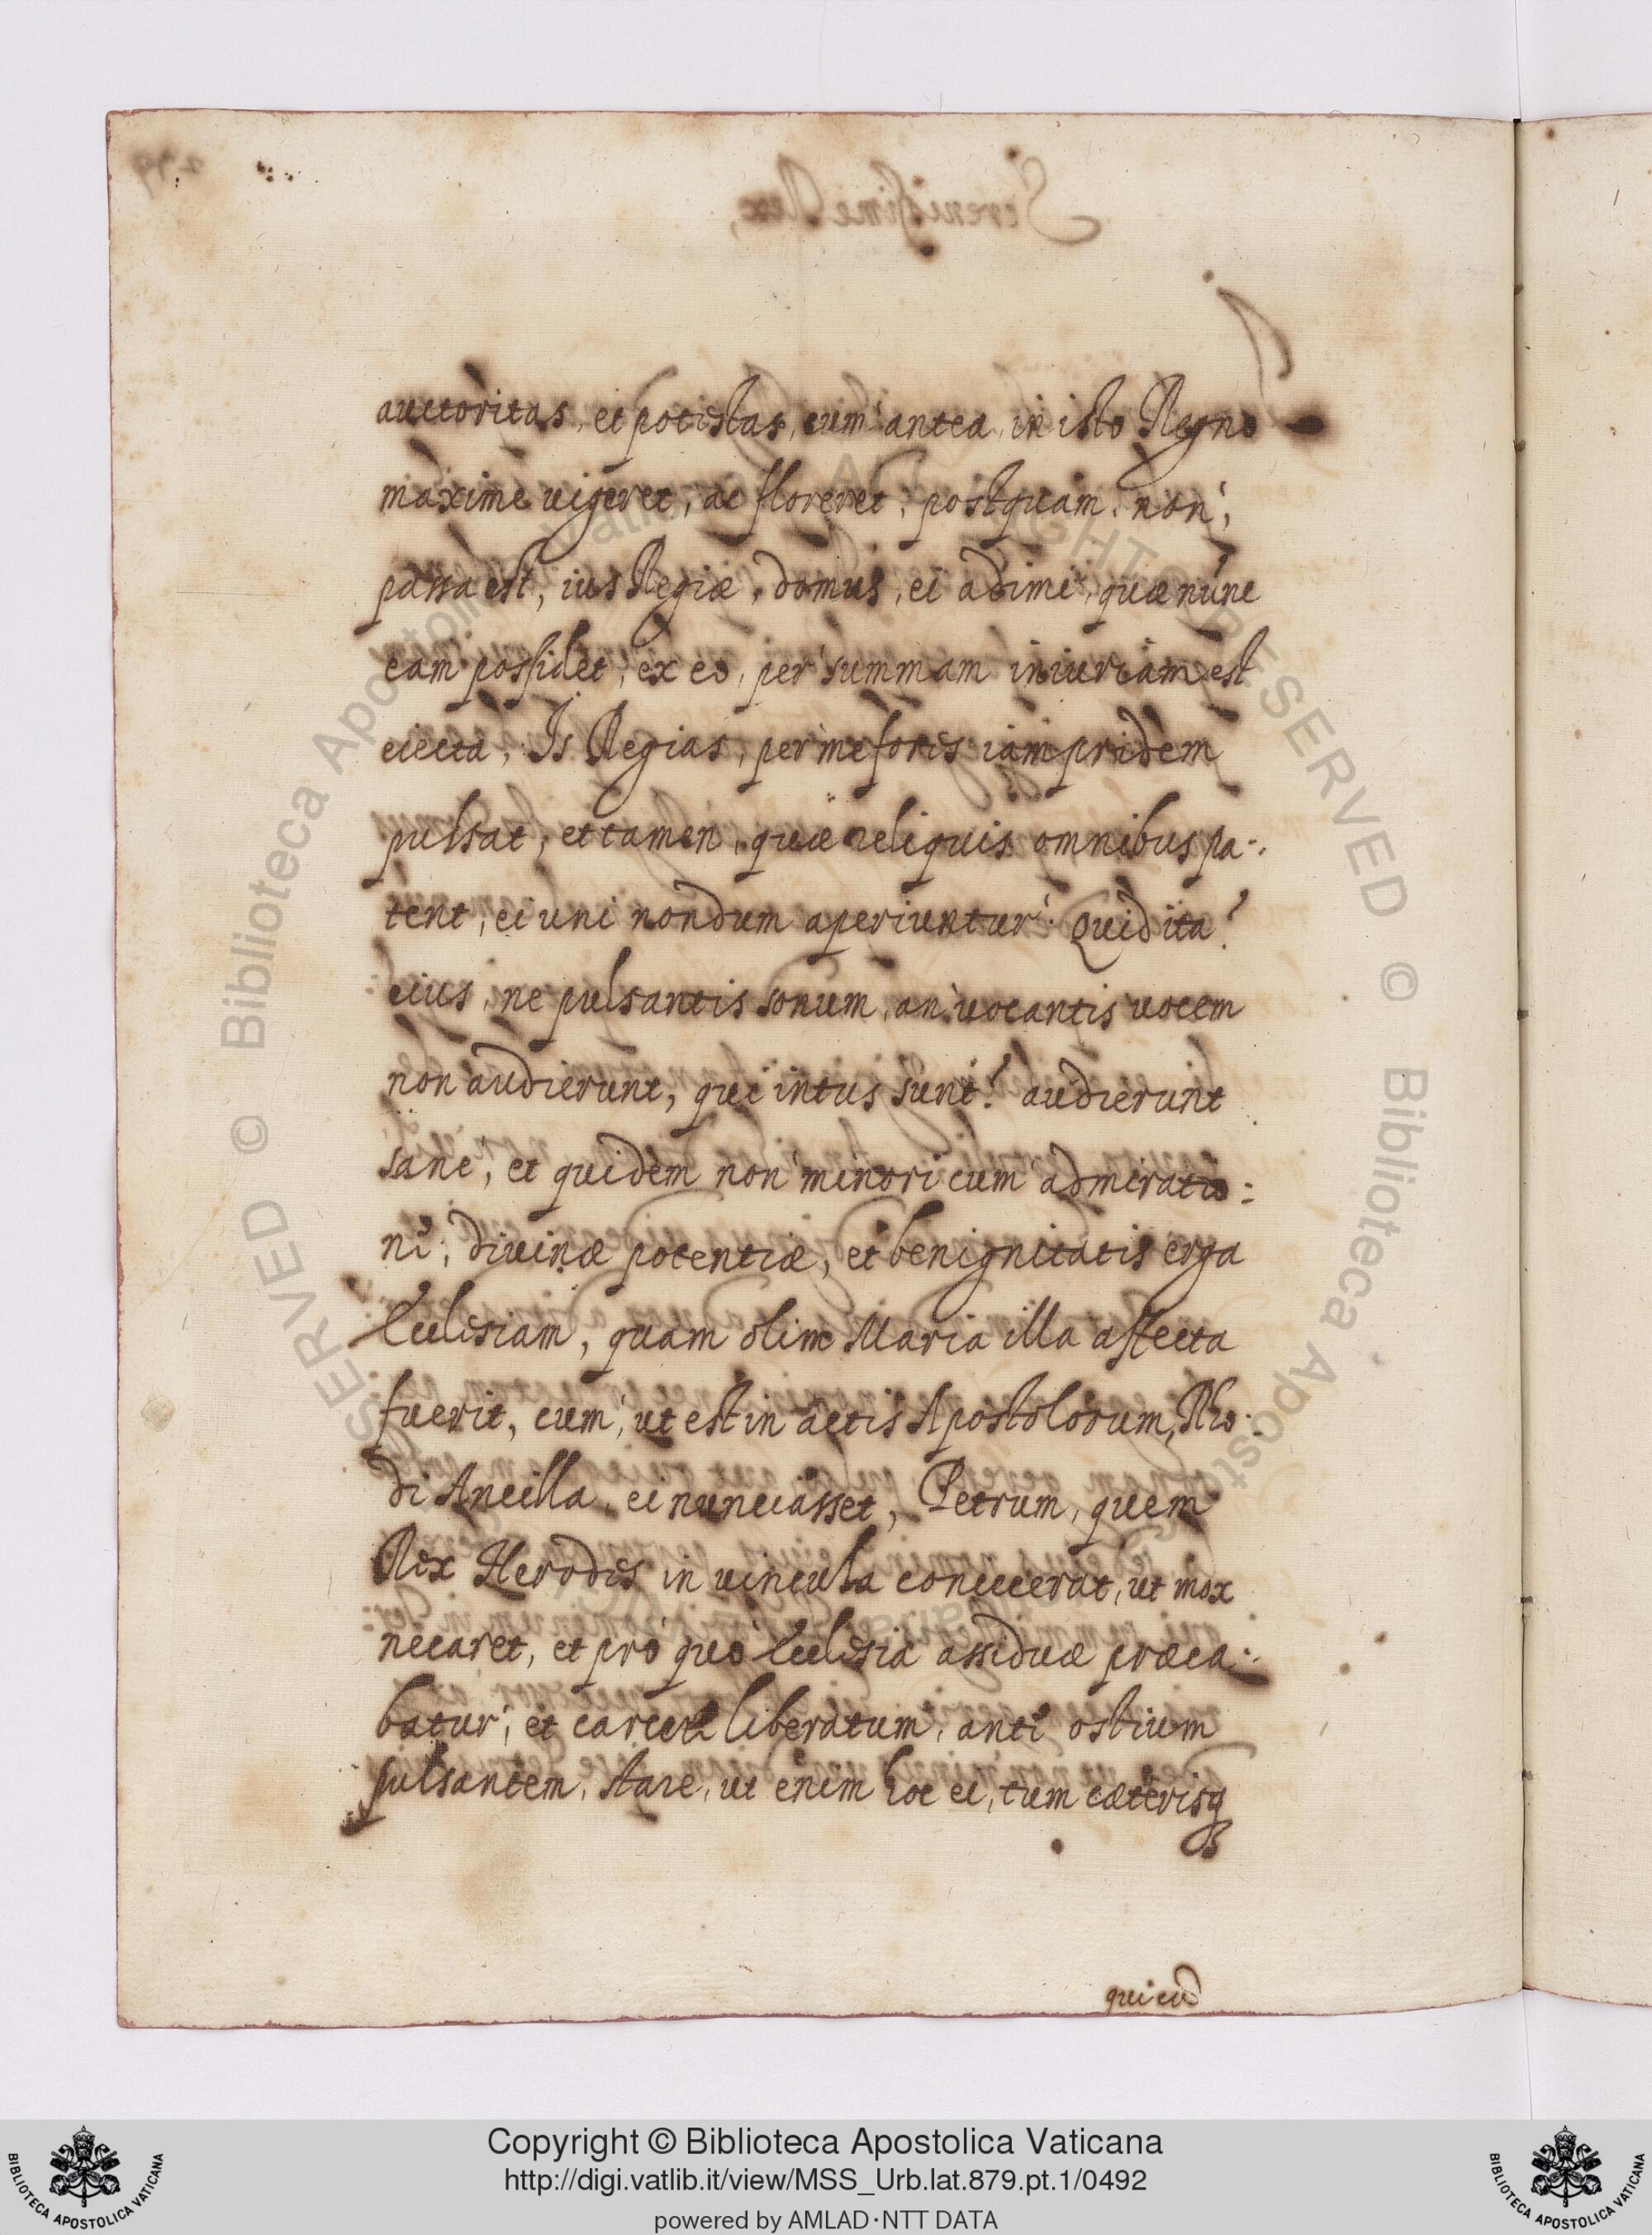 auctoritas, et potestas, cum antea, in isto Regno
maxime uigeret, ac floreret, postquam, non,
passa est, ius Regiæ, domus, ei adimi, quæ nunc
eam possidet, ex eo, per summam iniuriam est
eiecta, Is Regias, per me fores iam pridem
pulsat, et tamen, quæ reliquis omnibus pa-
tent, ei uni nondum aperiuntur. Quid ita?
eius, ne pulsantis sonum, an uocantis uocem
non audierunt, qui intus sunt? audierunt
sane, et quidem non minori cum admiratio=
ne, diuinæ potentiæ, et benignitatis erga
Ecclesiam, quam olim Maria illa affecta
fuerit, cum, ut est in actis Apostolorum, Rho-
de Ancilla, ei nunciasset, Petrum, quem
Rex Herodes in uincula coniecerat, ut mox
necaret, et pro quo Ecclesia assidue præca-
batur, et carcere liberatum, ante ostium
pulsantem, stare, ut enim hoc ei, tum cæterisq
qui cu
Copyright © Biblioteca Apostolica Vaticana
http://digi.vatlib.it/view/MSS_Urb.lat.879.pt.1/0492
powered by AMLAD·NTT DATA
BIBLIOTECA APOSTOLICA VATICANA
BIBLIOTECA APOSTOLICA VATICANA